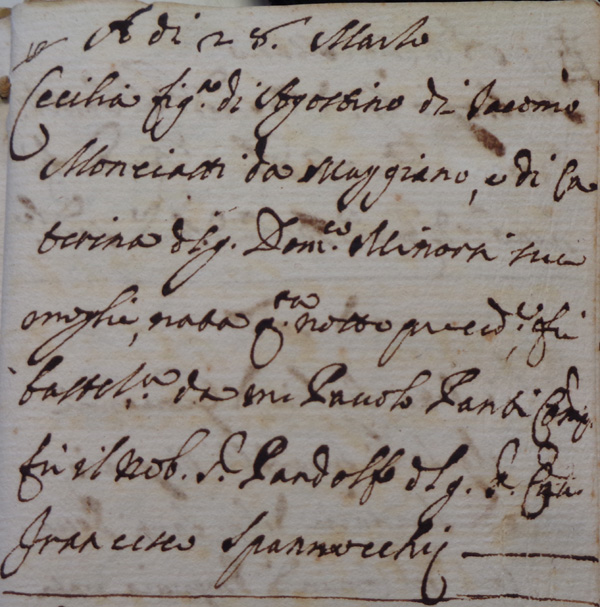 A di 28. Marzo
Cecilia fig.ª di Agostino di Iacomo
Monciatti da Muggiano, e di Ca
terina del q. Dom.co Minorsi sua
moglie, nata q.ta notte preced.e, fù
battez.ta da me Pavolo Panti Comp.
fù il Nob. S.r Pandolfo del q. S.r Cav.
Francesco Spannocchij